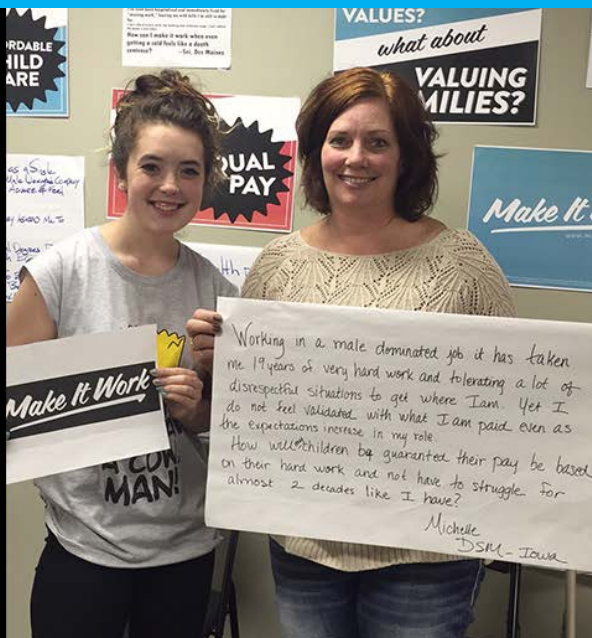 "missing work," leaving me with bills I'm still in debt
for.
How can I make it work when even
getting a cold feels like a death
sentence?
-Sei, Des Moines
VALUES?
what about
VALUING
MILIES?
ORDABLE
HILD
ARE
QUAL
PAY
Make It
as a Single
Advance & Feel
Make It Work
A COW,
MAN!
Working in a male dominated job it has taken
me 19 years of very hard work and tolerating a lot of
disrespectful situations to get where I am. Yet I
do not feel validated with what I am paid even as
the expectations increase in my role.
How will children be guaranted their pay be based
on their hard work and not have to struggle for
almost 2 decades like I have?
Michelle
DSM - Iowa